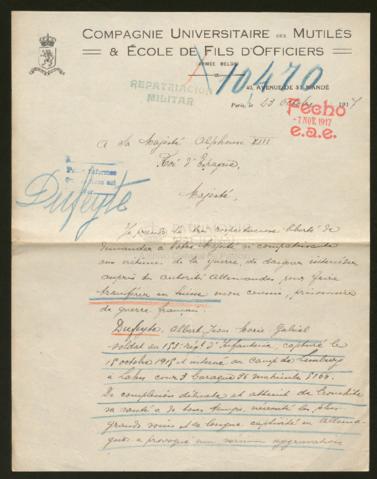 COMPAGNIE UNIVERSITAIRE DES MUTILÉS
& ÉCOLE DE FILS D'OFFICIERS
ARMÉE BELGE
A 10470
REPATRIACIÓN
MILITAR
42, AVENUE DE ST MANDÉ
Paris, le 23 Octobre 1917
Fecho
-7 NOV. 1917
e.a.e.
A Sa Majesté Alphonse XIII
Roi d'Espagne,
Dufeyte
Majesté,
Je prends la très respectueuse liberté de
demander à Votre Majesté si compatissante
aux victimes de la guerre, de daigner intercéder
auprès des autorités Allemandes, pour faire
transférer en Suisse mon cousin, prisonnier
de guerre français.
Dufeyte, Albert Jean Marie Gabriel
soldat au 158 régt d'Infanterie, capturé le
18 octobre 1915 et interné au camp de Limburg
a/Lahn
De complexion délicate et atteint de bronchite
sa santé a de tous temps nécessité les plus
grands soins et sa longue captivité en Allema-
gne a provoqué une sérieuse aggravation